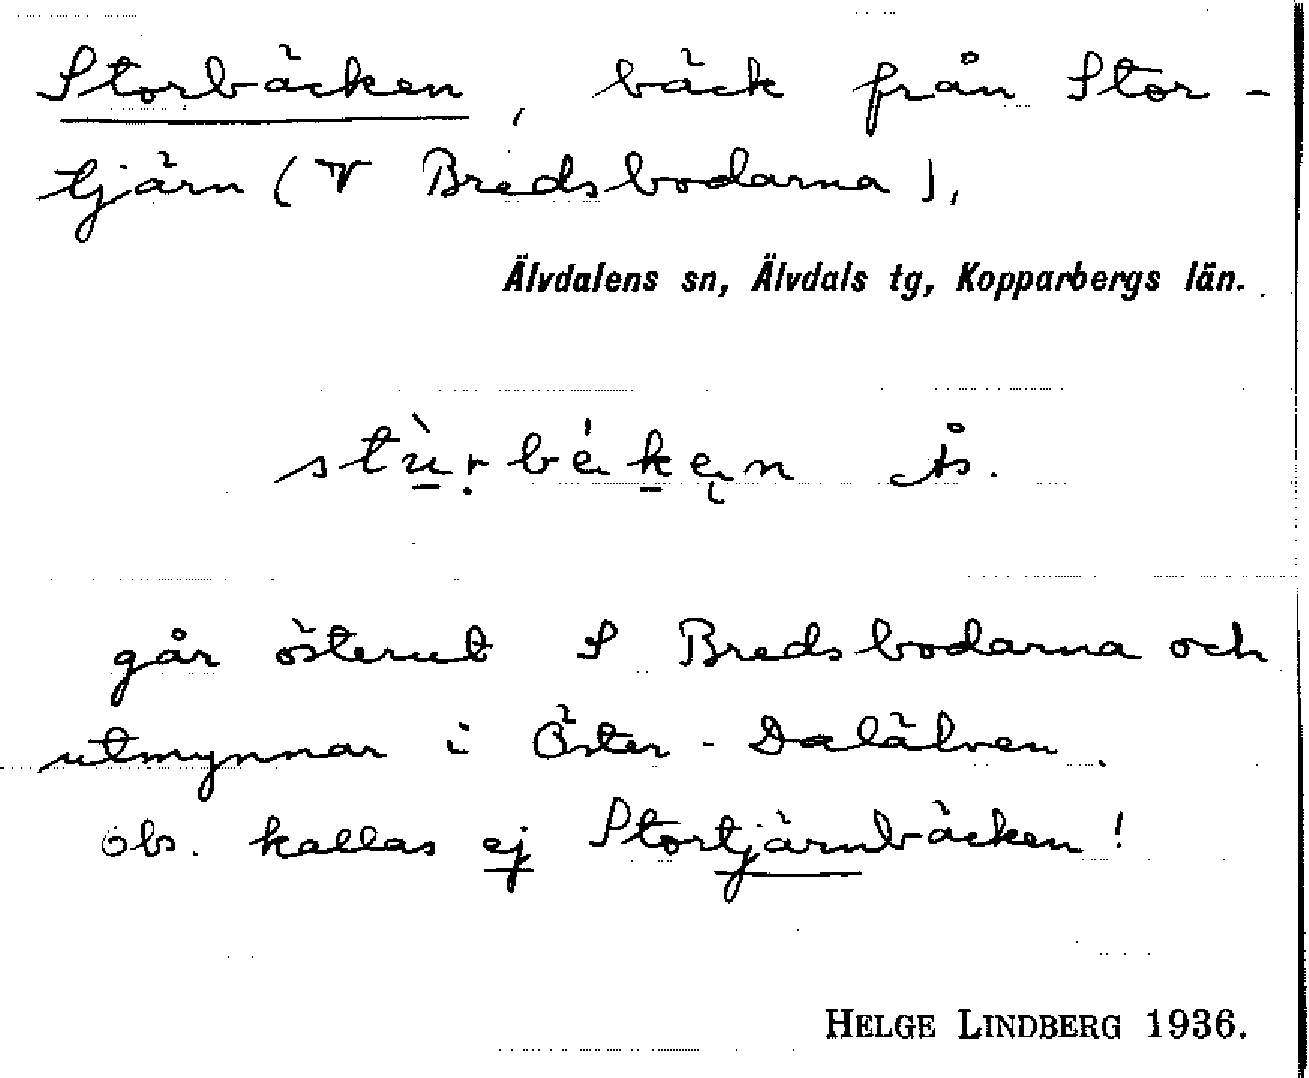 Storbäcken, bäck från Stor-
tjärn (V Bredsbodarna),
Älvdalens sn, Älvdals tg, Kopparbergs län.
går österut S Bredsbodarna och
utmynnar i Öster-Dalälven.
obs. kallas ej Stortjärnbäcken!
HELGE LINDBERG 1936.